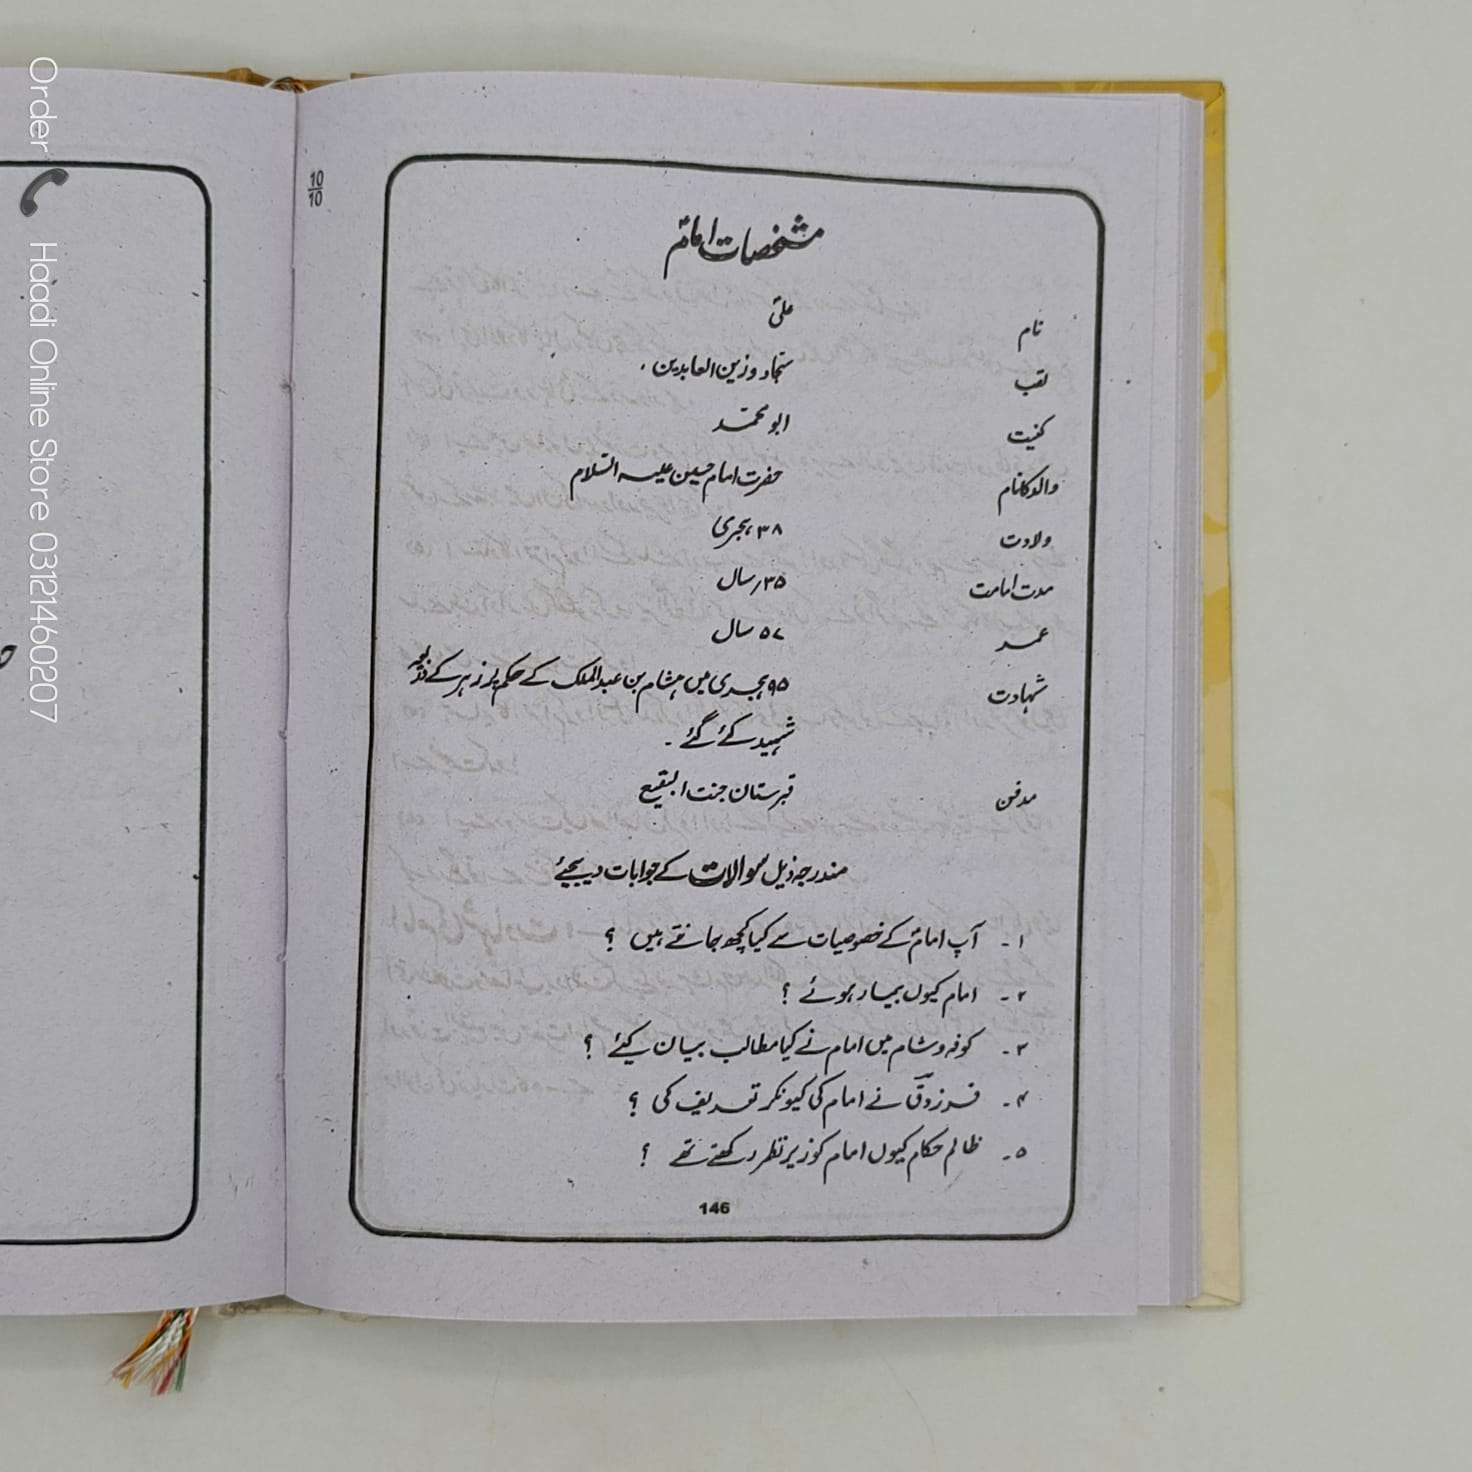 Order
Haadi Online Store 03121460207
10
10
مشخصات امامؑ
نام علیؑ
لقب سجّاد و زین العابدین .
کنیت ابو محمّد
والد کا نام حضرت امام حسین علیہ السّلام
ولادت ۳۸ ہجری
مدت امامت ۳۵ سال
عمر ۵۷ سال
شہادت ۹۵ ہجری میں ہشام بن عبدالملک کے حکم پر زہر کے ذریعہ
شہید کئے گئے ۔
مدفن قبرستان جنت البقیع
مندرجہ ذیل سوالات کے جوابات دیجئے
۱ ۔ آپ امامؑ کے خصوصیات سے کیا کچھ جانتے ہیں ؟
۲ ۔ امام کیوں بیمار ہوئے ؟
۳ ۔ کوفہ و شام میں امام نے کیا مطالب بیان کیئے ؟
۴ ۔ فرزدق نے امام کی کیونکر تعریف کی ؟
۵ ۔ ظالم حکام کیوں امام کو زیر نظر رکھتے تھے ؟
146